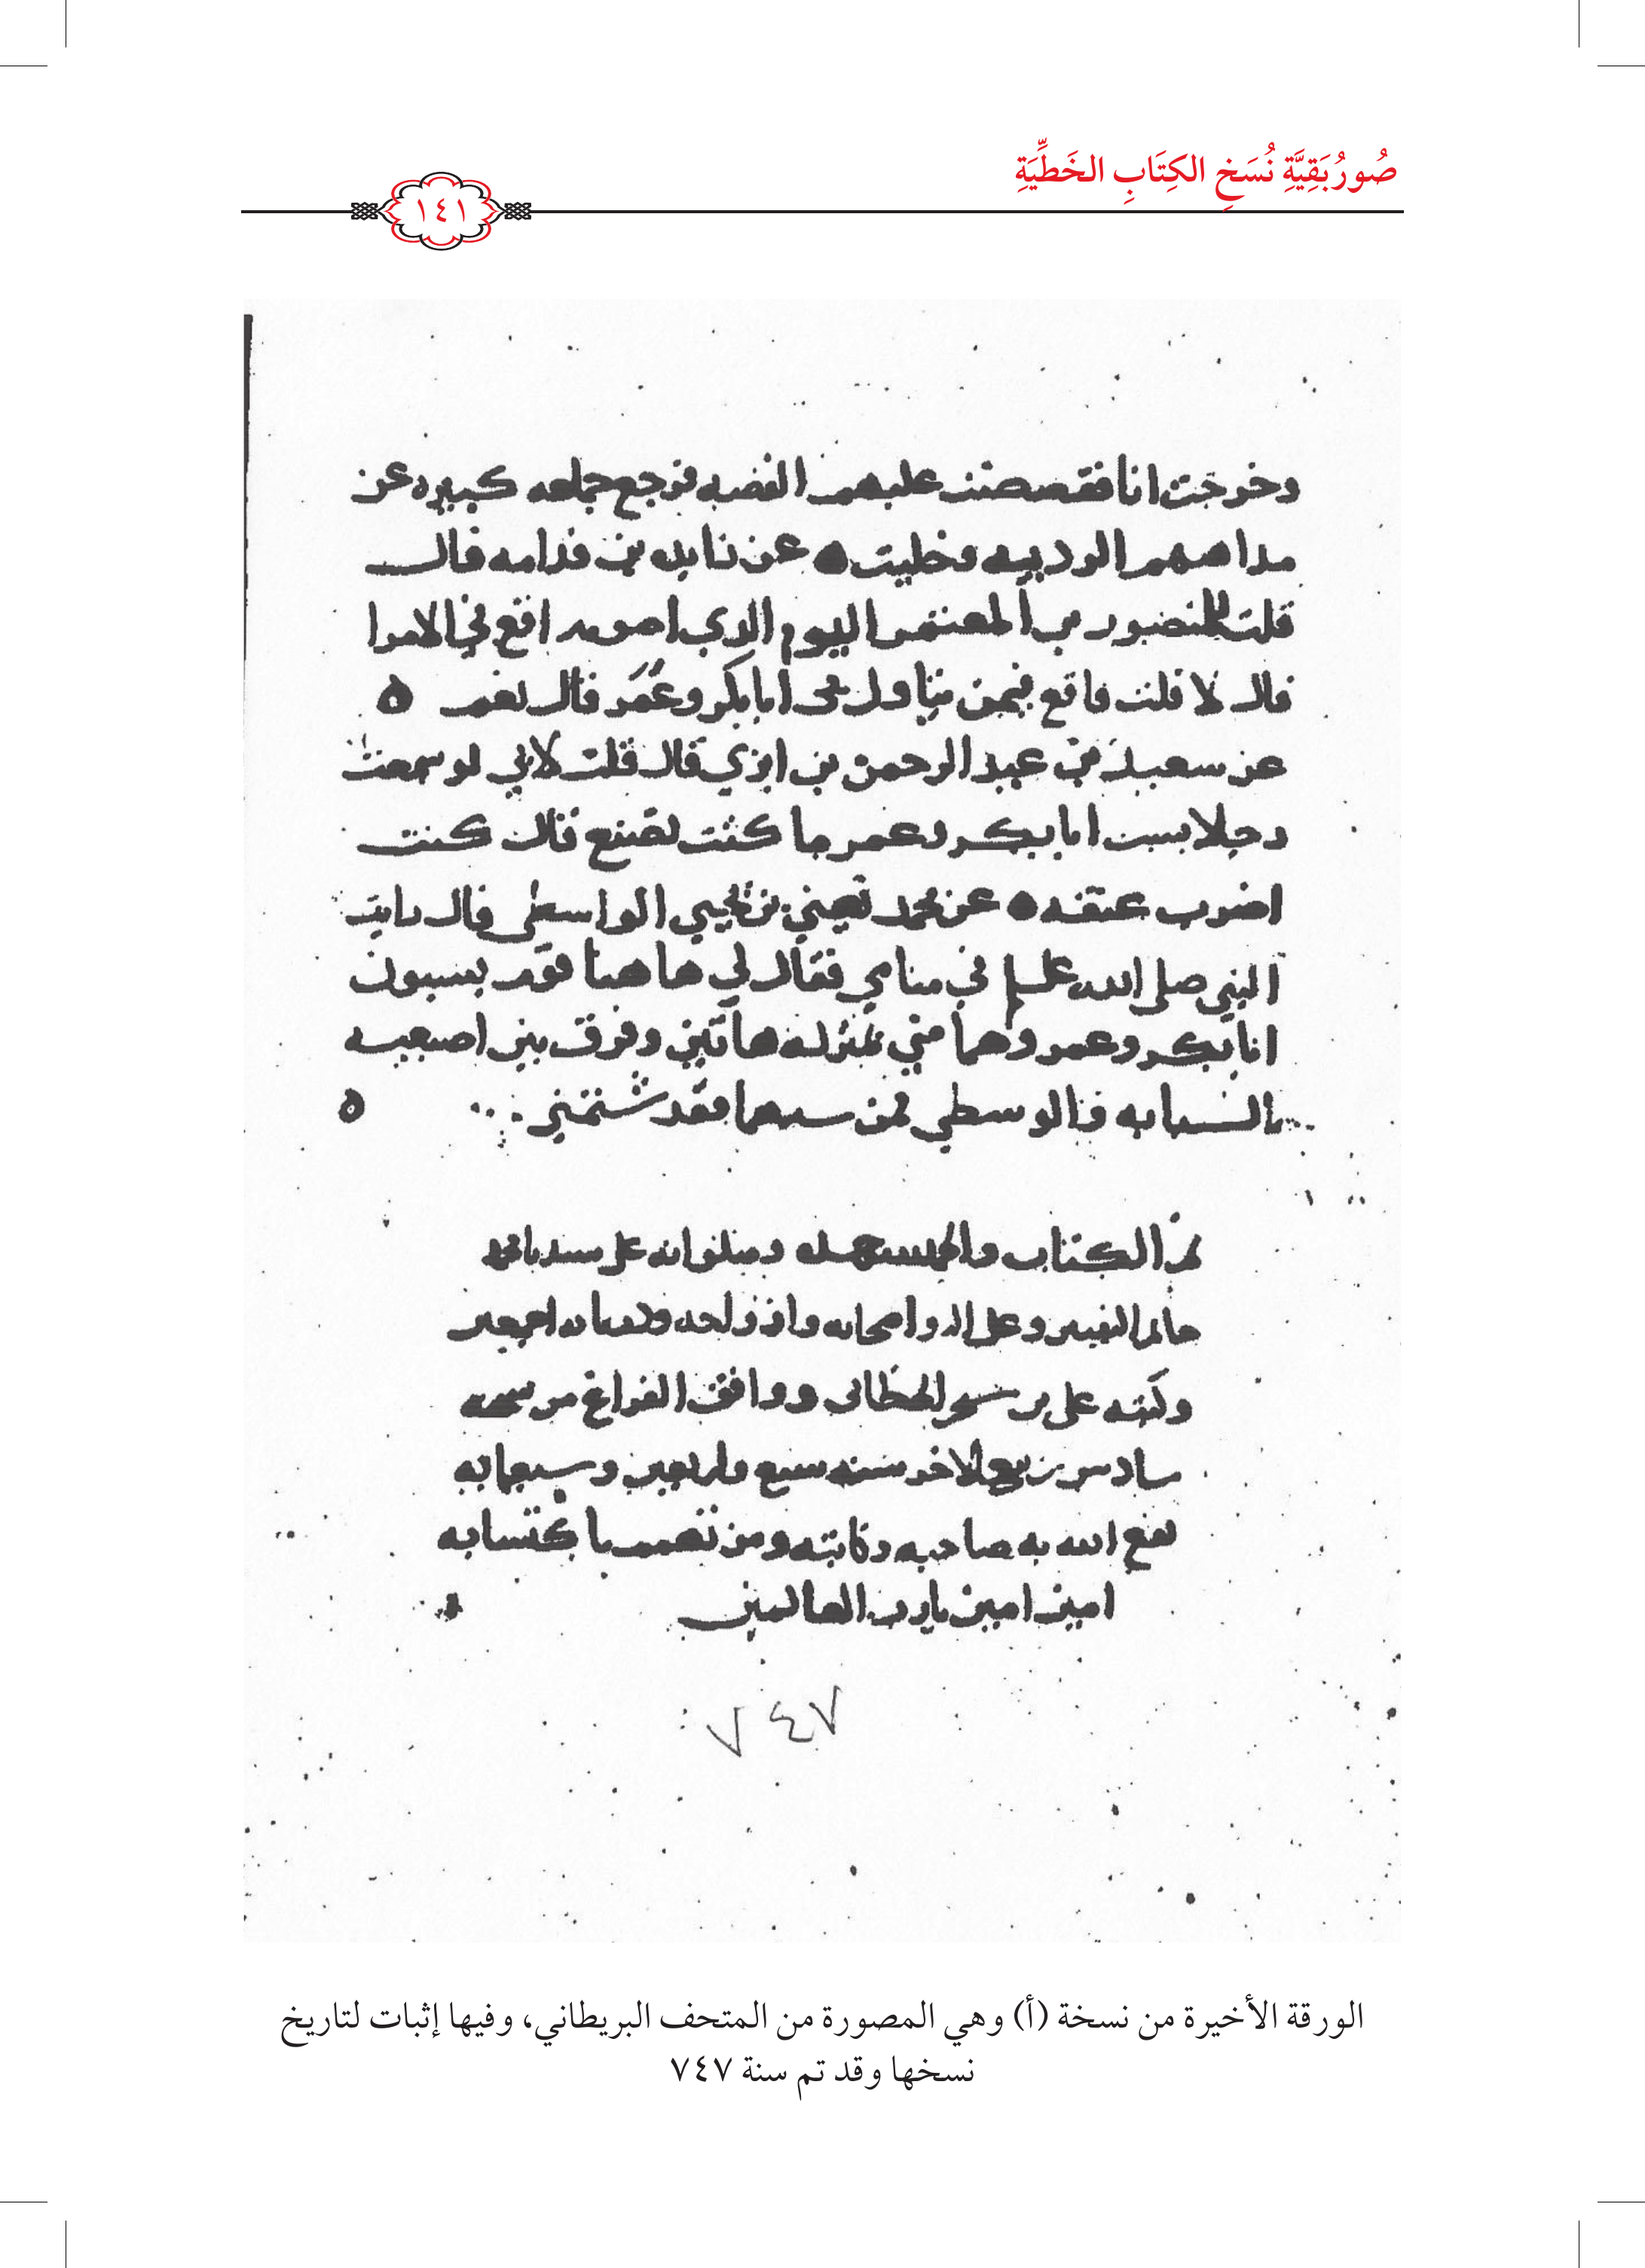 صُورُ بَقِيَّةِ نُسَخِ الكِتَابِ الخَطِّيَّةِ
١٤١
وخرجت انا فقصصت عليهم القصه فرجع جماعه كبيره عن
مذاهبهم الرديه عن زايده بن قدامه قال
قلت للمنصور بن المعتمر اليوم الذي اصومه اقع في الامرا
قال لا قلت فاقع فيمن يتناول ابا بكر وعمر قال نعم ه
عن سعيد بن عبد الرحمن بن ابزي قال قلت لابي لو سمعت
رجلا يسب ابا بكر وعمر ما كنت تصنع قال كنت
اضرب عنقه ه عن محمد يعني بن يحيي الواسطي قال رايت
النبي صلى الله عليه في منامي فقال لي هاهنا قوم يسبون
ابا بكر وعمر وهما مني بمنزله هاتين وفرق بين اصبعيه
بالسبابه والوسطي فمن سبهما فقد شتمني ه
تم الكتاب والحمد لله وصلواته على سيدنا محمد
خاتم النبيين وعلى اله واصحابه وازواجه وذرياته اجمعين
وكتبه على بن الخطابي ووافق الفراغ من
سادس ربيع الاخر سنه سبع واربعين وسبعمايه
نفع الله به صاحبه وكاتبه ومن باكتسابه
امين امين يارب العالمين
٧٤٧
الورقة الأخيرة من نسخة (أ) وهي المصورة من المتحف البريطاني، وفيها إثبات لتاريخ
نسخها وقد تم سنة ٧٤٧